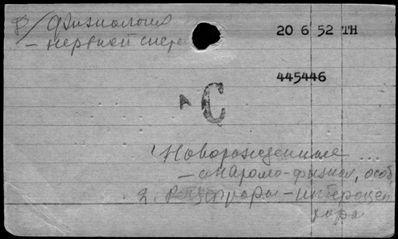 В/ Физиология
20 6 52 TH
– нервной
445446
C
Новорожденные ...
– анатомо-физиол, особ
2. Рецепторы – интероцеп
тора